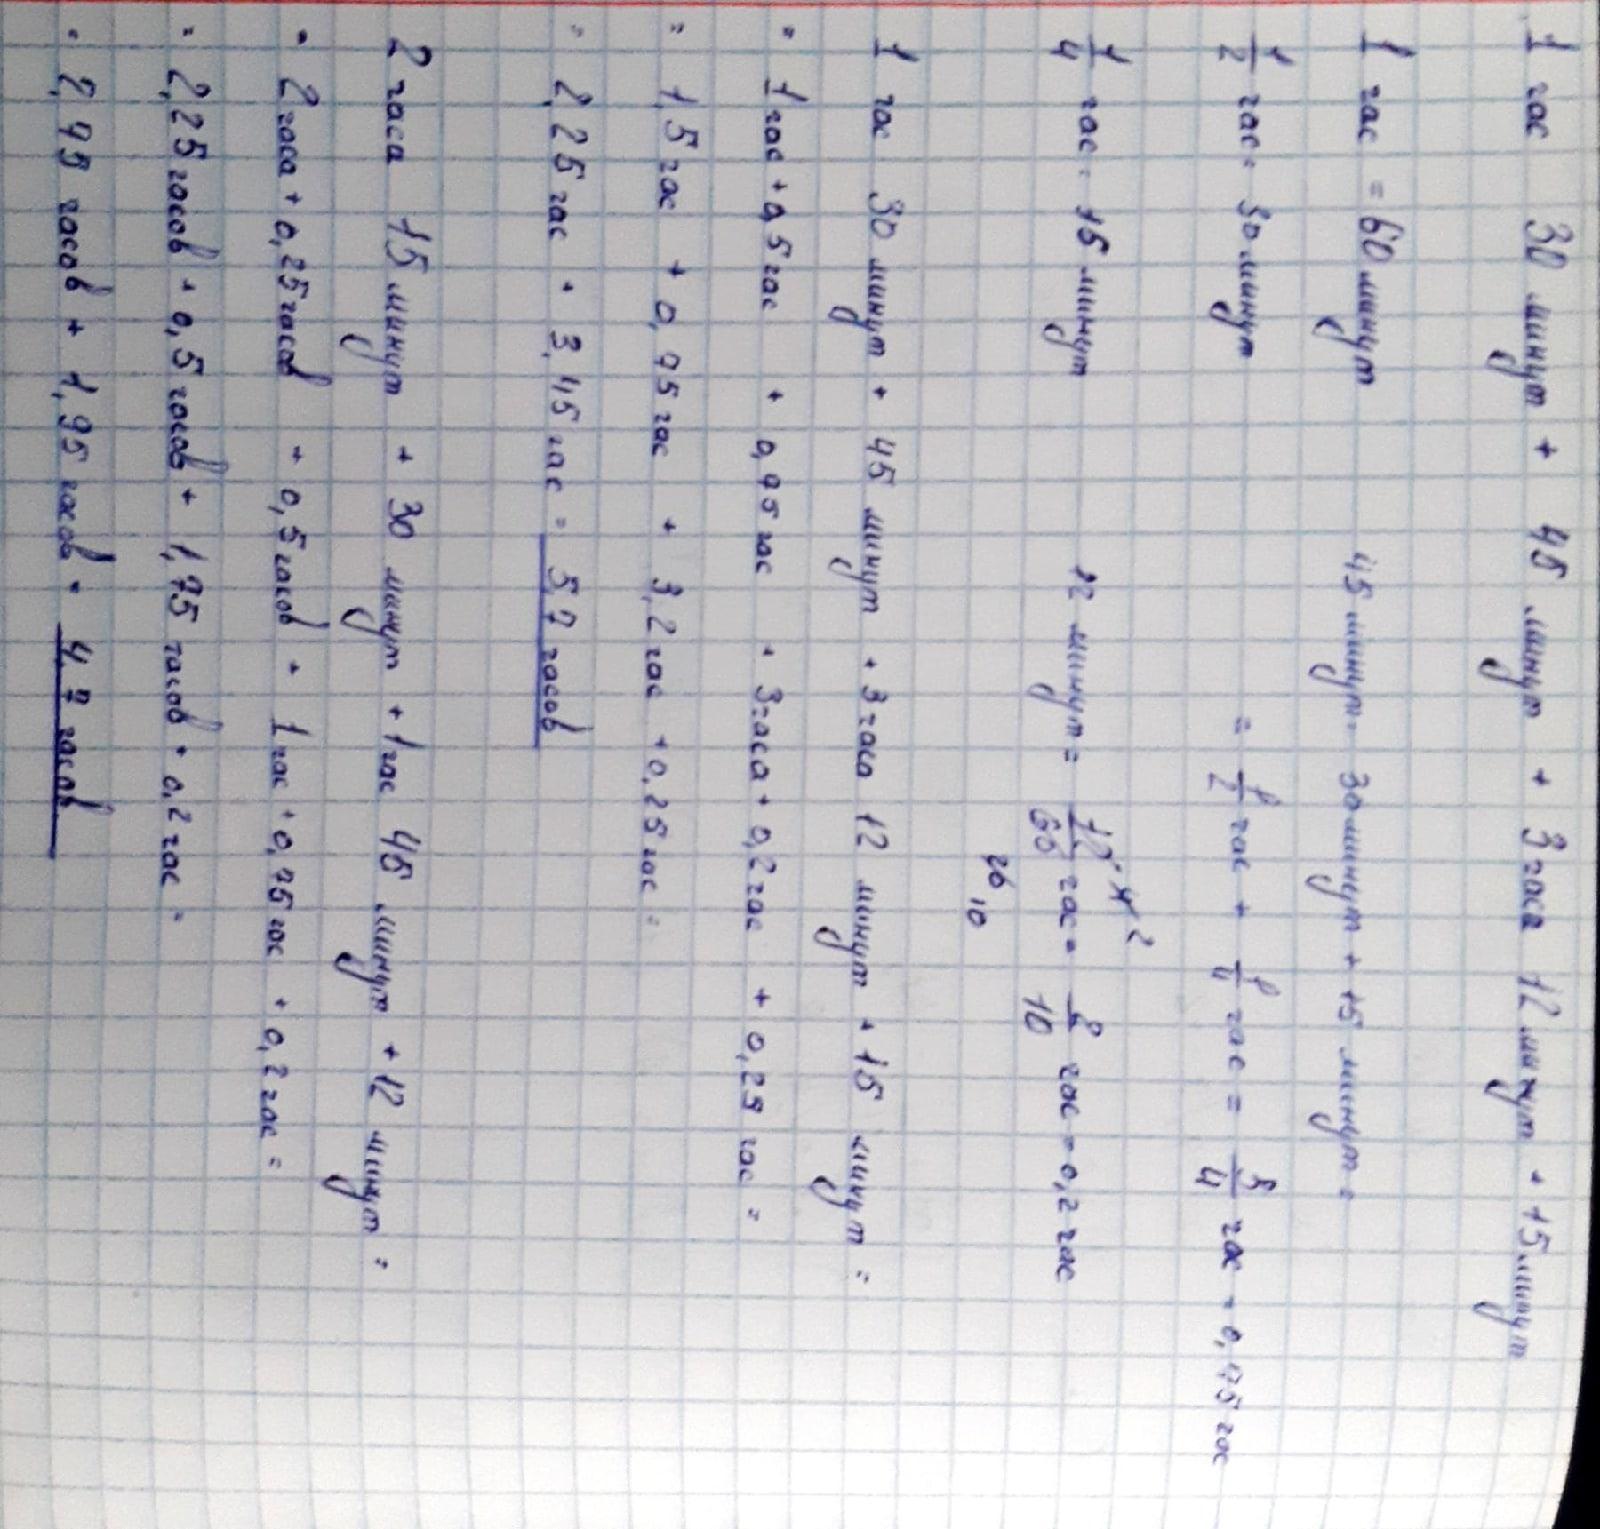 1 час 30 минут + 45 минут + 3 часа 12 минут + 15 минут
1 час = 60 минут 45 минут = 30 минут + 15 минут =
1/2 час = 30 минут = 1/2 час + 1/4 час = 3/4 час = 0,75 час
1/4 час = 15 минут 12 минут = 12/60 час = 2/10 час = 0,2 час
1 час 30 минут + 45 минут + 3 часа 12 минут + 15 минут =
= 1 час + 0,5 час + 0,75 час + 3 часа + 0,2 час + 0,25 час =
= 1,5 час + 0,75 час + 3,2 час + 0,25 час =
= 2,25 час + 3,45 час = 5,7 часов
2 часа 15 минут + 30 минут + 1 час 45 минут + 12 минут =
= 2 часа + 0,25 часов + 0,5 часов + 1 час + 0,75 час + 0,2 час =
= 2,25 часов + 0,5 часов + 1,75 часов + 0,2 час =
= 2,75 часов + 1,95 часов = 4,7 часов